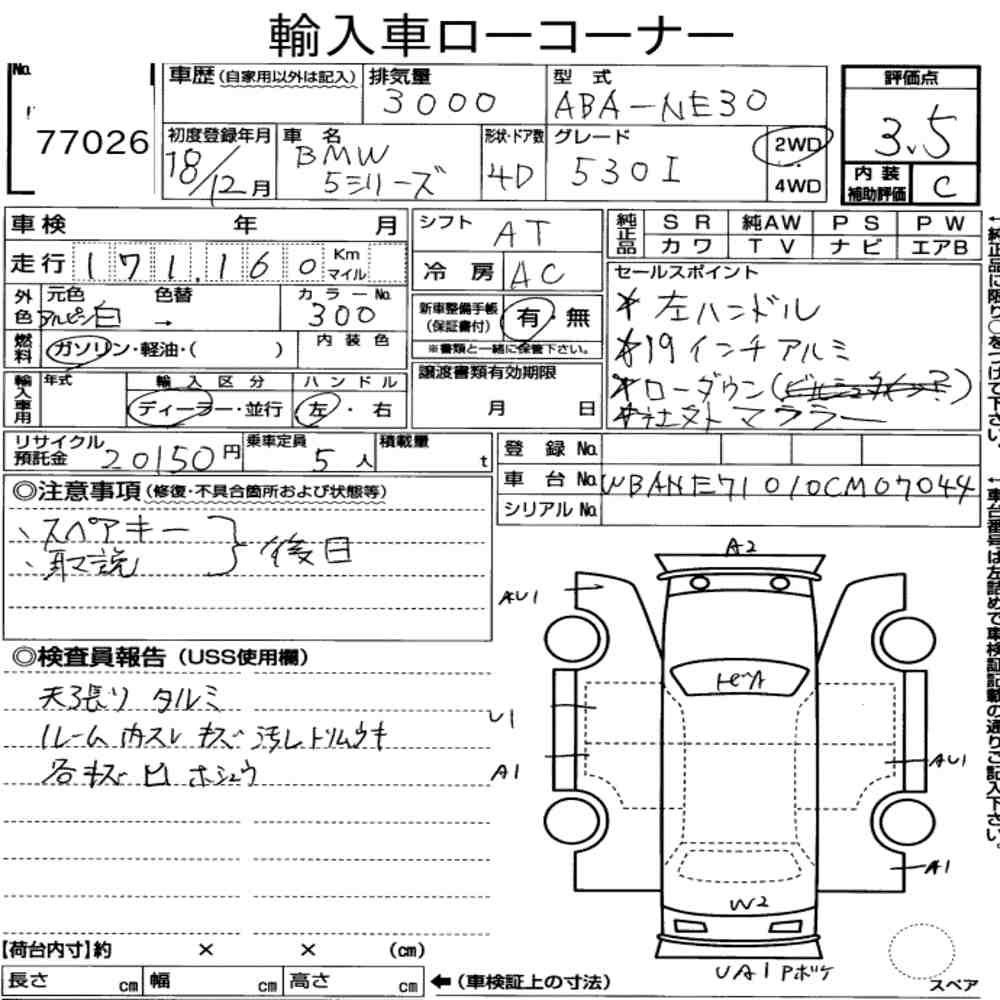 輸入車ローコーナー
No. 77026
車歴(自家用以外は記入)
排気量 3000
型式 ABA-NE30
評価点 3.5
初度登録年月 18/12月
車名 BMW 5シリーズ
形状・ドア数 4D
グレード 530I
2WD
4WD
内装補助評価 C
車検 年 月
シフト AT
純正品 SR 純AW PS PW
カワ TV ナビ エアB
走行 171,160 Km マイル
冷房 AC
セールスポイント
* 左ハンドル
* 19インチアルミ
* ローダウン(
* 社外マフラー
外色 元色 アルピン白 → 色替
カラーNo. 300
新車整備手帳(保証書付) 有・無
※書類と一緒に保管下さい。
燃料 ガソリン・軽油・( )
内装色
輸入車用 年式
輸入区分 ディーラー・並行
ハンドル 左・右
譲渡書類有効期限
月 日
リサイクル預託金 20150円
乗車定員 5人
積載量 t
登録No.
車台No. WBANE71010CM07044
シリアルNo.
◎注意事項(修復・不具合箇所および状態等)
、スペアキー
、取説
後日
◎検査員報告(USS使用欄)
天張り タルミ
ルーム内スレ キズ 汚レ トリムウキ
各キズ 凹 ホシュウ
A2
AU1
U1
A1
AU1
A1
W2
UA1 Pボケ
スペア
【荷台内寸】約 × × (cm)
長さ cm 幅 cm 高さ cm ←(車検証上の寸法)
←純正品に限り○をつけて下さい。
←車台番号は左詰めで車検証記載の通りご記入下さい。